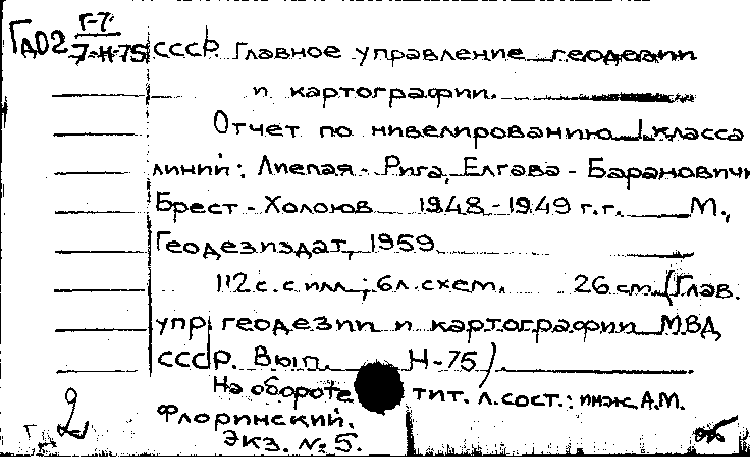 Гд02 Г-7
7-Н-75 СССР Главное управление геодезии
и картографии.
Отчет по нивелированию I класса
линий: Лиепая - Рига, Елгава - Барановичи
Брест - Холоюв 1948-1949 г.г. М.,
Геодезиздат, 1959
112 с. с илл.; 6 л. схем. 26 см. (Глав.
упр. геодезии и картографии МВД
СССР. Вып. Н-75)
На обороте тит. л. сост.: инж. А.М.
Флоринский.
Экз. № 5.
2